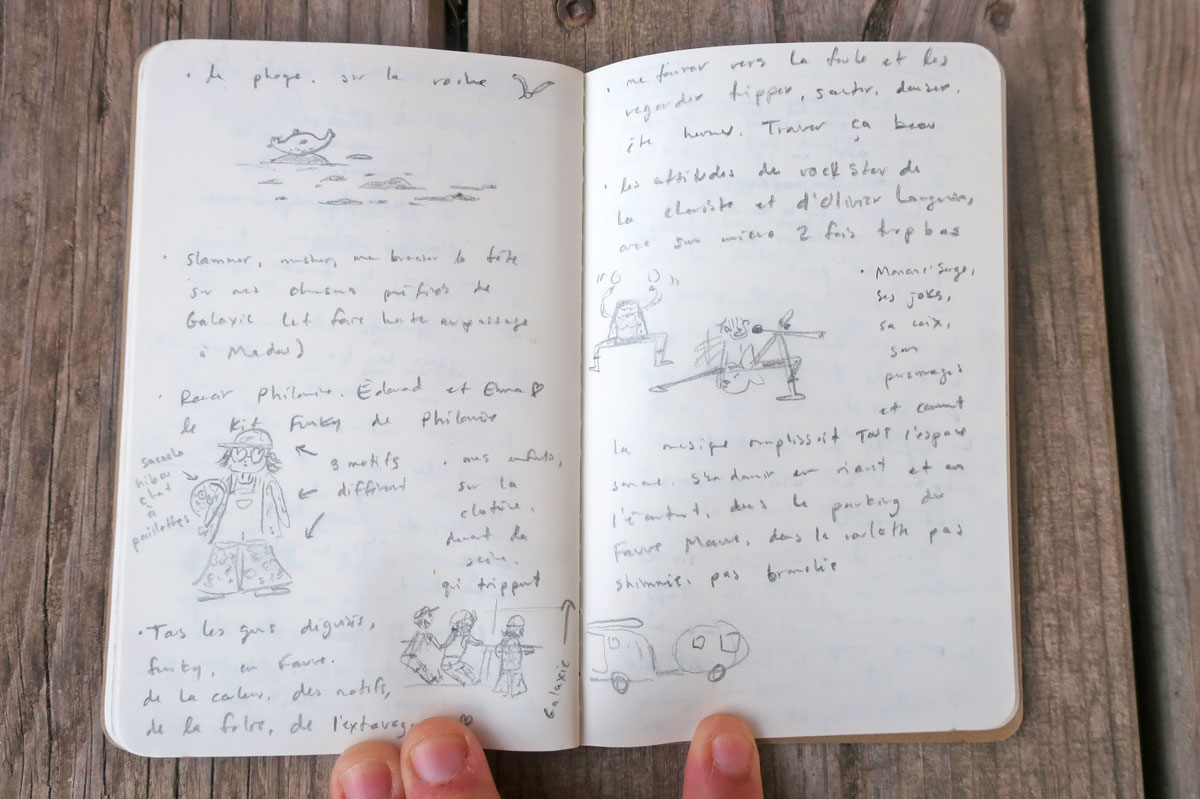 • la plage. sur la roche
• slammer, mosher, me brasser la tête
sur mes chansons préférés de
Galaxie (et faire hate au passage
à Mado)
• Revoir Philomène. Édouard et Emma ♡
le kit funky de Philomène
sacoche
hibou
chat
à
paillettes
3 motifs
différent
• mes enfants,
sur la
clotûre,
devant la
scène.
qui trippent
• Tous les gens déguisés,
funky, en Fauve.
de la couleur, des motifs,
de la folie, de l'extravag ♡
Galaxie
• me tourner vers la foule et les
regarder tripper, sauter, danser.
être heureux. Trouver ça beau
• les attitudes de rockstar de
la claviste et d'Olivier Langevin,
avec son micro 2 fois trop bas
• Monsieur Serge,
ses jokes,
sa voix,
son
personnage
et comment
la musique remplissait TOUT l'espace
sonore. S'endormir en riant et en
l'écoutant, dans le parking du
Fauve Mauve, dans la roulotte pas
shimmée, pas branchée